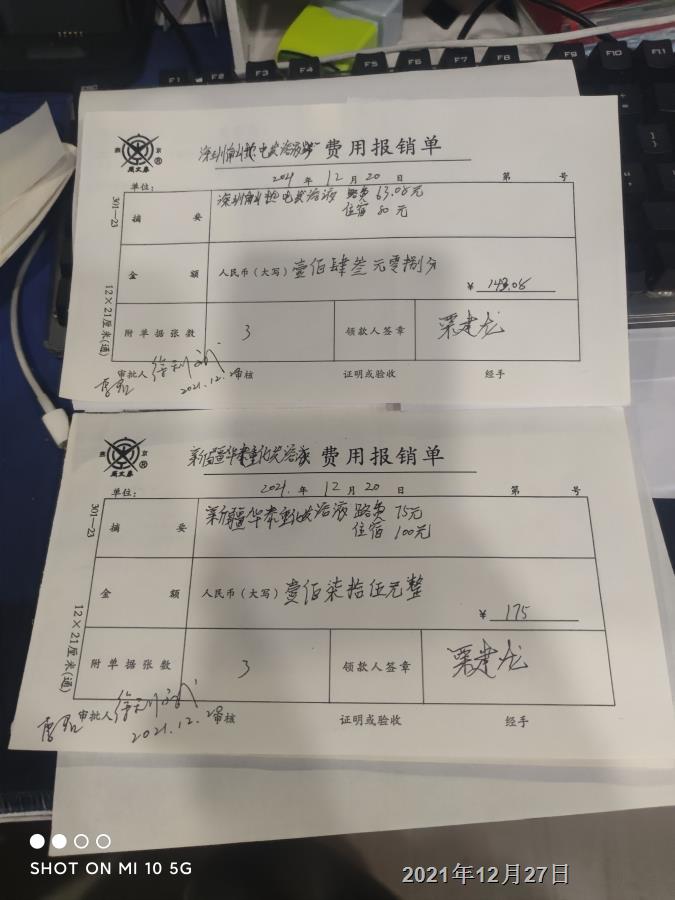 F1 F2 F3 F4 F5 F6 F7 F8 F9 F10 F11
燕 京 ®
深圳南山热电炭溶液 费用报销单
2021 年 12 月 20 日 第 号
单位:
301—23
摘 要
深圳南山热电炭溶液 路费 63.08元
住宿 80元
金 额
人民币(大写) 壹佰肆叁元零捌分
¥ 143.08
12×21厘米(通)
附单据张数 3 领款人签章 栗建龙
审批人 审核 证明或验收 经手
2021.12.28
燕 京 ®
新疆华泰重化炭溶液 费用报销单
2021. 年 12 月 20 日 第 号
单位:
301—23
摘 要
新疆华泰重化炭溶液 路费 75元
住宿 100元
金 额
人民币(大写) 壹佰柒拾伍元整
¥ 175
12×21厘米(通)
附单据张数 3 领款人签章 栗建龙
审批人 审核 证明或验收 经手
2021.12.28
SHOT ON MI 10 5G
2021年12月27日